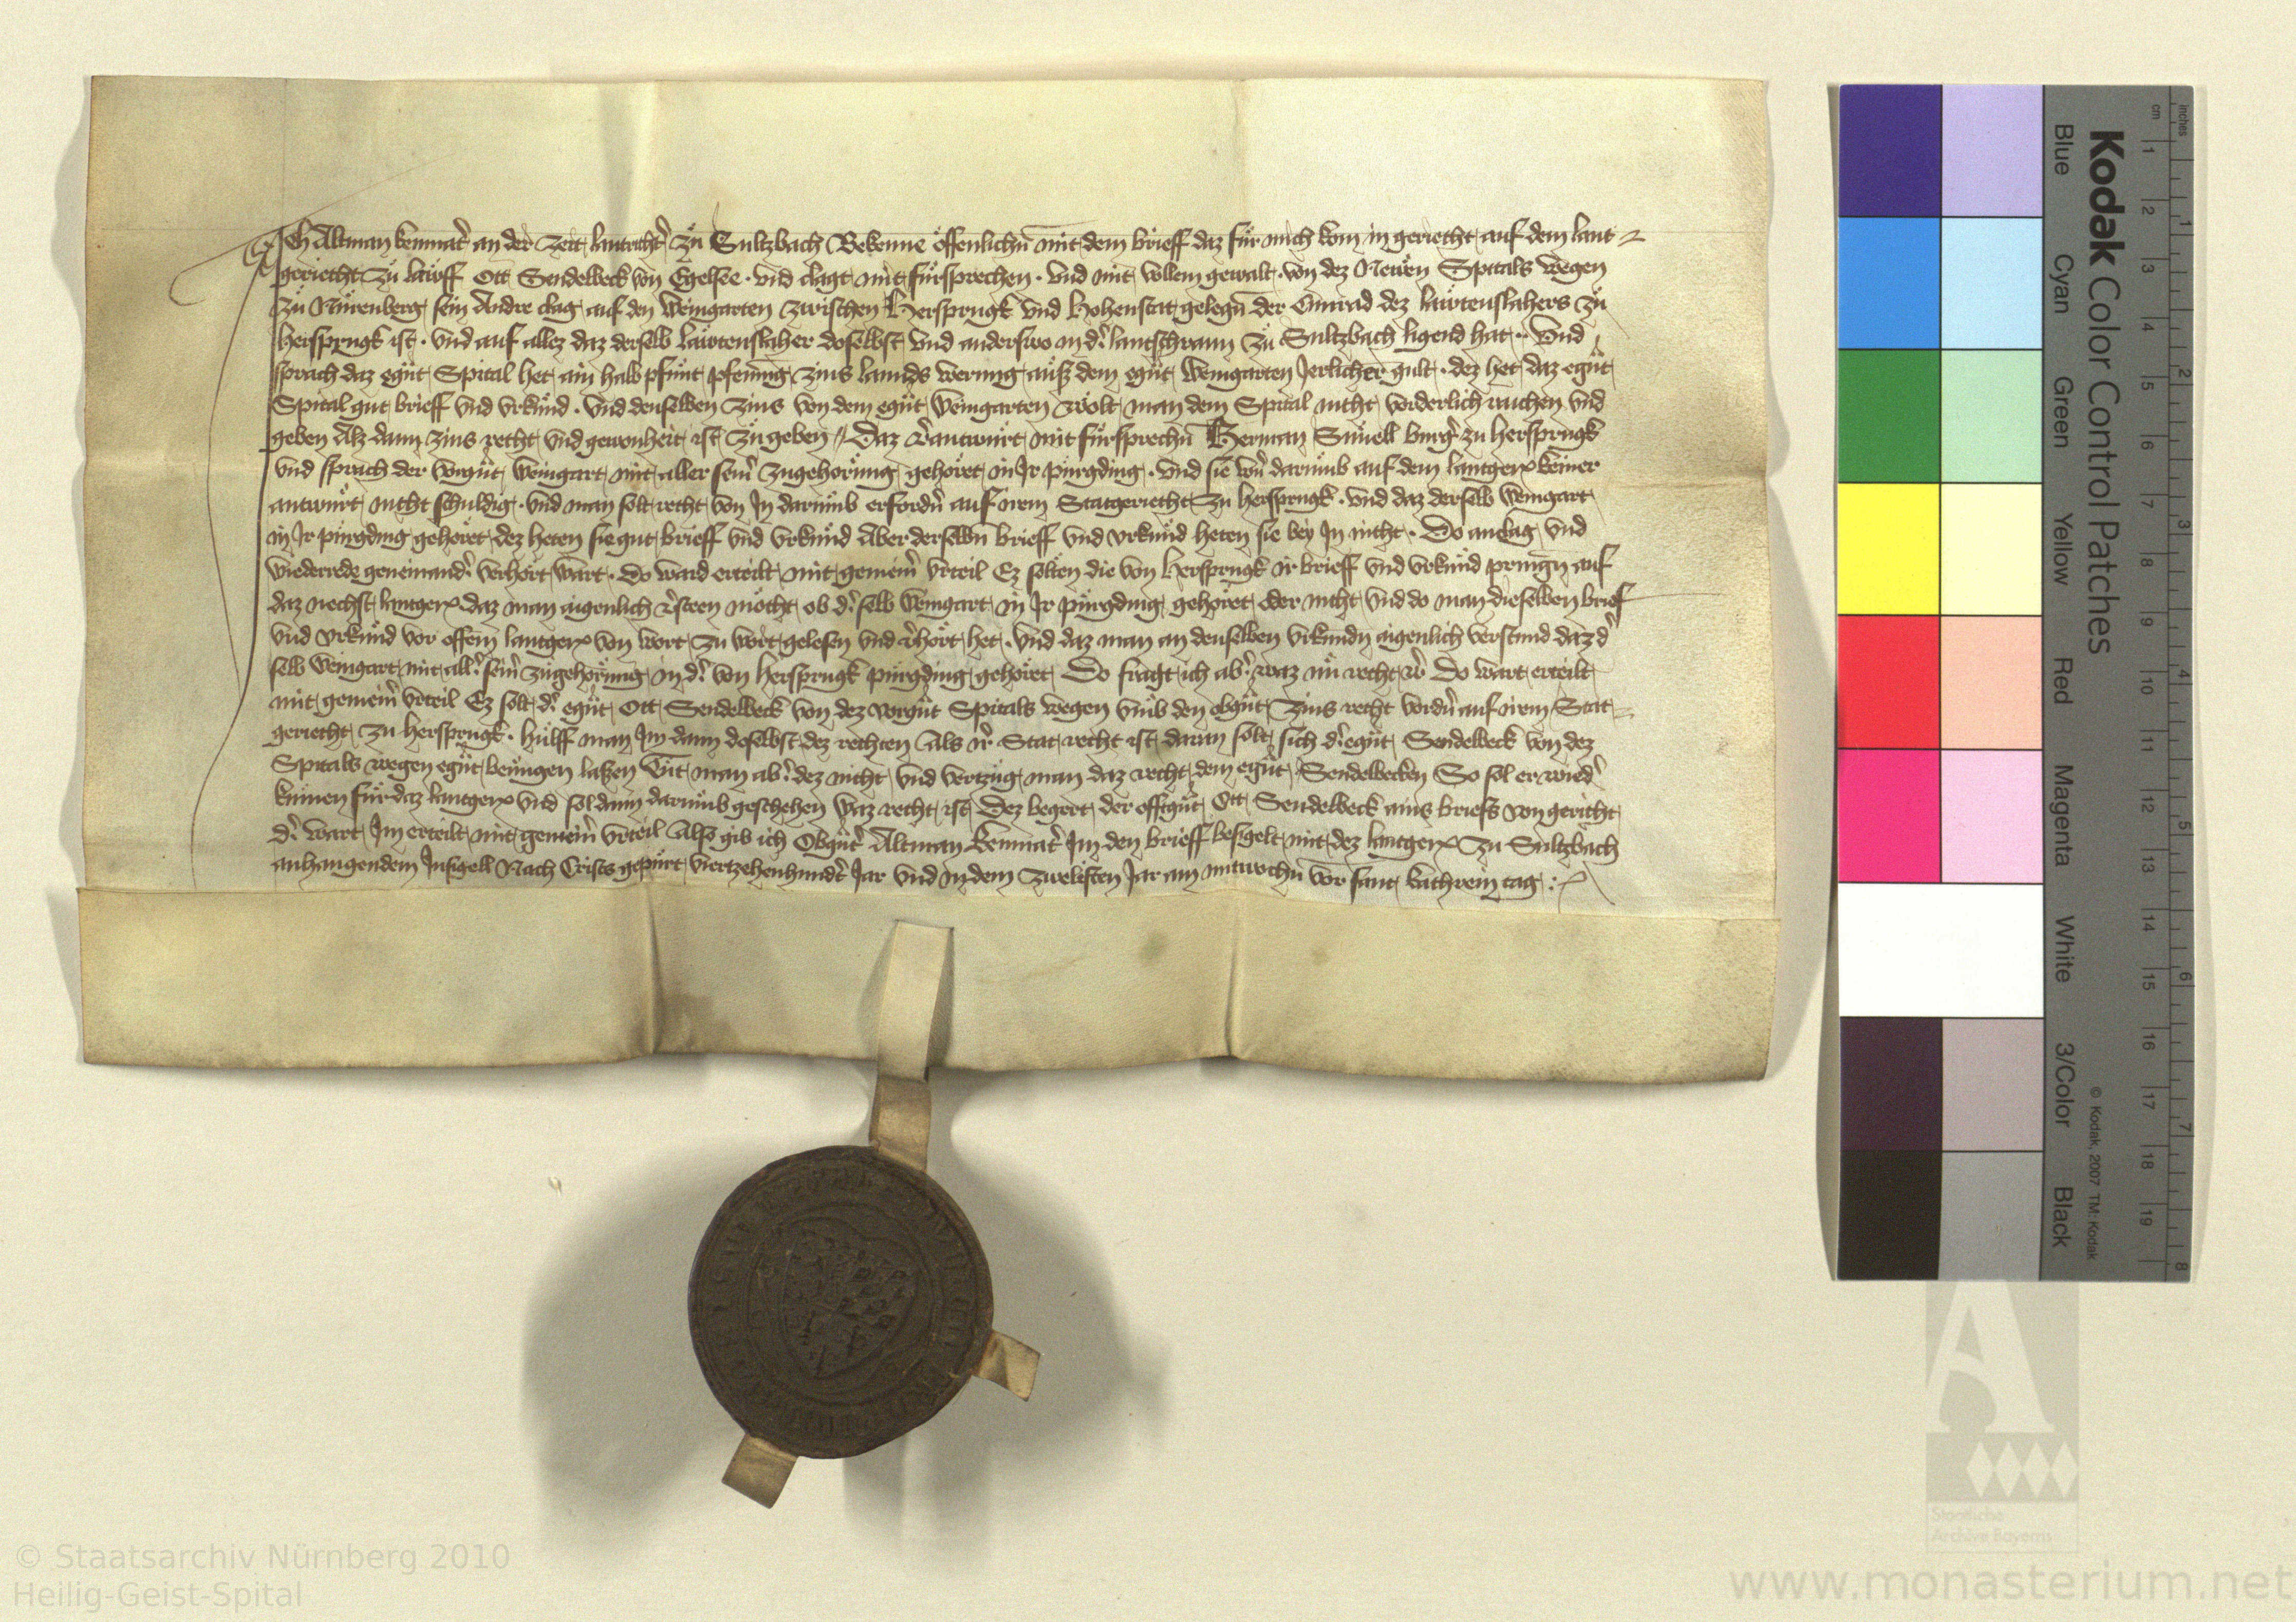 Ich Altman kemnat' an der zeit lantricht' zů Sultzbach Bekenne offenlichn mit dem brieff daz für mich kom in geriecht auf dem lant
geriecht zů lauff Ott Sendelbeck von Egelsee · vnd clagt mit fürsprechen · vnd mit vollem gewalt · von dez Newen Spitals wegen
zu Nürenberg sein Andre clag auf den Weingarten zwischen Hersprugk vnd Hohenstat gelegn der Cunrad dez lawtenslahers zů
hersprugk ist · vnd auf allez daz derselb lawtenslaher doselbst vnd anderswo in d' lantschrann zů Sultzbach ligend hat · Vnd
sprach daz egñt Spital het ain halb pfunt pfening zins lands werung auß dem egñt Weingarten Jerlicher gult · dez het daz egñt
Spital gut brieff vnd vrkund · vnd denselben zins von dem egñt Weingarten wolt man dem Spital nicht vorderlich raichen vnd
geben Alz dann zins recht vnd gewonheit ist zů geben Daz v'antwurt mit fürsprechn Herman burg' zu hersprugk
vnd sprach der vorgñt Weingart mit aller sein' zugehorung gehoret in Jr purgding · vnd sie wern darumb auf dem lantger' keiner
antwurt nicht schuldig · vnd man solt recht von In darumb erfordn auf irem Statgeriecht zu hersprugk · vnd daz derselb Weingart
in Jr purgding gehoret dez heten sie gut brieff vnd vrkund Aber derselbn brieff vnd vrkund heten sie bey In nicht · Do anclag vnd
wiederrede geneinand' verhort wart · Do ward erteilt mit gemein' vrteil Ez solten die von hersprugk ir brieff vnd vrkund pringn auf
daz nechst lantger' daz man aigenlich v'steen mocht ob d' selb Weingart in Jr purgding gehoret oder nicht vnd do man dieselben brief
vnd vrkund vor offem lantger' von wort zu wort gelesen vnd v'hort het · vnd daz man an denselben vrkundn aigenlich verstund daz d'
selb Weingart mit all' sein' zugehorung in d' von hersprugk purgding gehoret Do fragt ich ab' waz nu recht w' Do wart erteilt
mit gemein' vrteil Ez solt d' egñt Ott Sendelbeck von dez vorgñt Spitals wegen vmb den obgñt zins recht vordn auf irem Stat
geriecht zu hersprugk · hulff man Im dann doselbst dez rechten Als ir' Stat recht ist daran solt sich d' egñt Sendelbeck von dez
Spitals wegen egñt benugen laßen Tut man ab' dez nicht vnd vertzug man daz recht dem egñt Sendelbecken So sol er wied'
kumen für daz lantger' vnd sol dann darumb geschehen waz recht ist Dez begert der offtgñt Ott Sendelbeck ains briefs von gericht
d' wart Im erteilt mit gemein' vrteil Also gib ich Obgñt' Altman kemnat' Im den brieff besigelt mit dez lantger' zu Sultzbach
anhangendem Insigell Nach Crists gepurt viertzehenhundt' Jar vnd in dem zwelften Jar am mitwochn vor sant kathrein tag
Kodak Color Control Patches
Blue Cyan Green Yellow Red Magenta White 3/Color Black
© Kodak, 2007 TM: Kodak
cm 1 2 3 4 5 6 7 8 9 10 11 12 13 14 15 16 17 18 19
inches 1 2 3 4 5 6 7 8
Staatliche
Archive Bayerns
© Staatsarchiv Nürnberg 2010
Heilig-Geist-Spital
www.monasterium.net